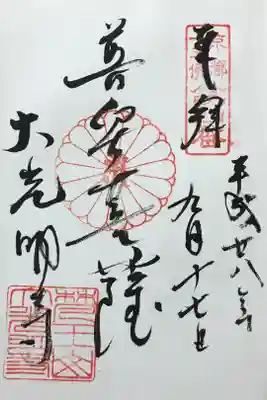 奉拝
平成廿八年
九月十七日
普賢菩薩
大光明寺